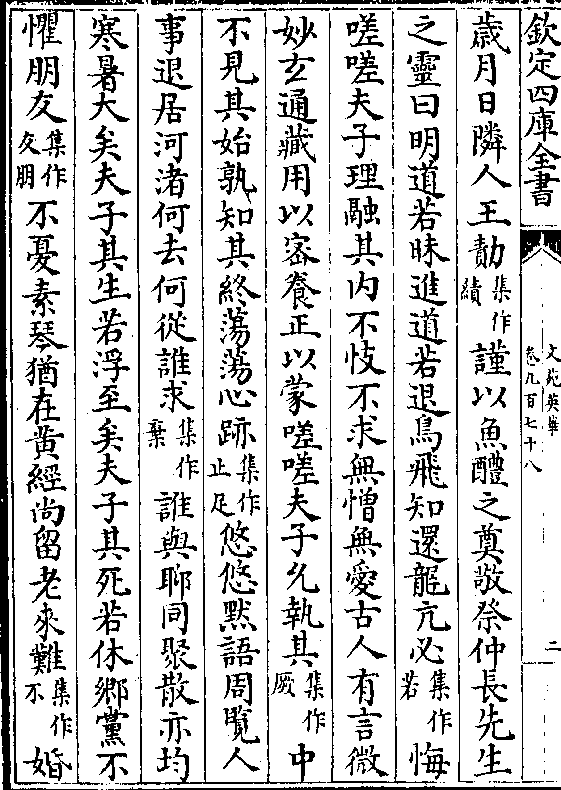 欽定四庫全書
文苑英華
卷九百七十八
二
歲月日隣人王勣集作績謹以魚醴之奠敬祭仲長先生
之靈曰明道若昧進道若退鳥飛知還龍亢必集作若悔
嗟嗟夫子理融其内不忮不求無憎無愛古人有言微
妙玄通藏用以密養正以蒙嗟嗟夫子允執其集作厥中
不見其始孰知其終蕩蕩心跡集作止足悠悠黙語周覽人
事退居河渚何去何從誰求集作棄誰與聊同聚散亦均
寒暑大矣夫子其生若浮至矣夫子其死若休鄉黨不
懼朋友集作友朋不憂素琴猶在黄經尚留老來難集作不婚